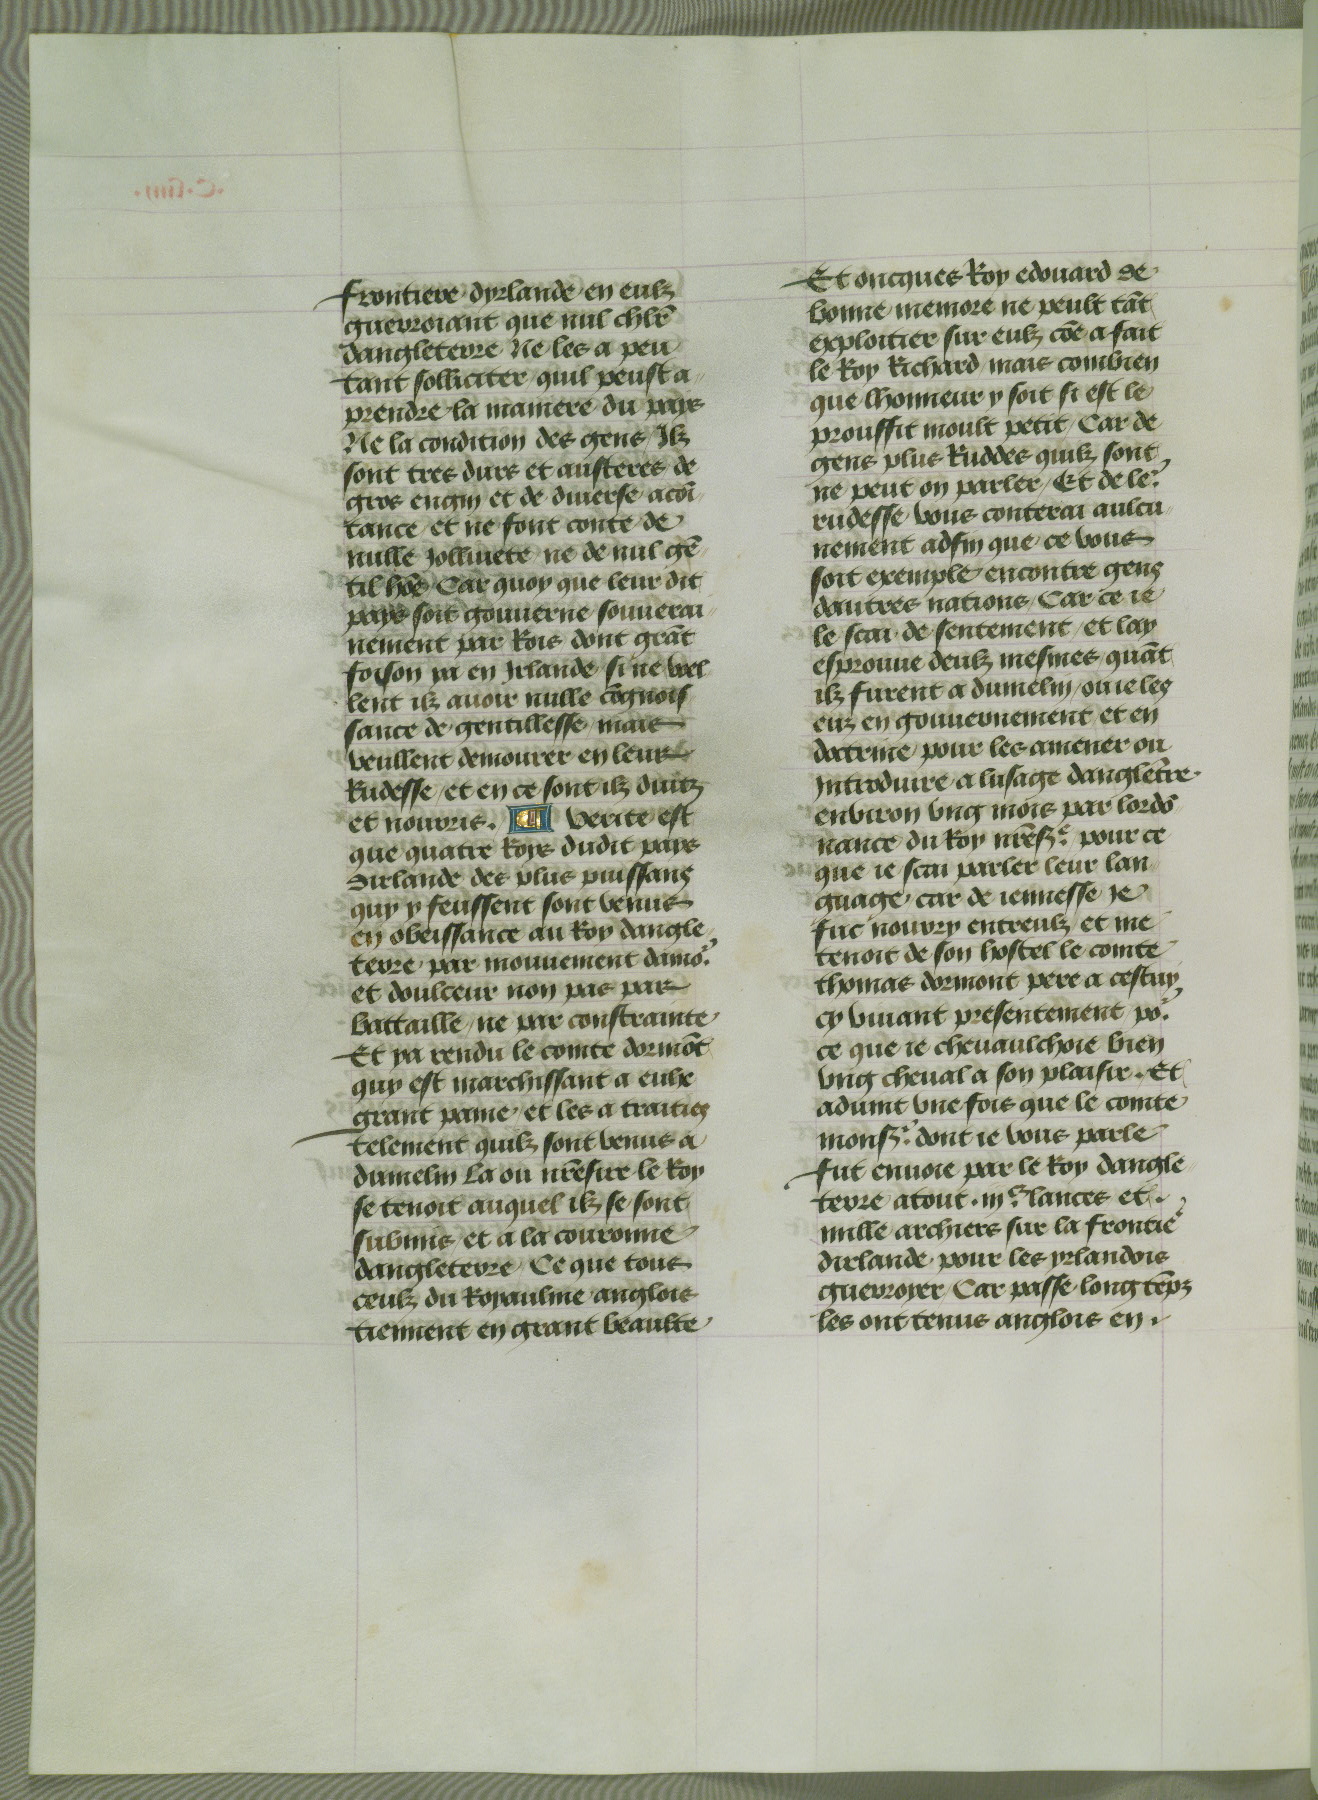 frontiere dyrlande en eulz
guerroiant que nul chl̃r
dangleterre Ne les a peu
tant solliciter quil peust a
prendre la maniere du pays
Ne la condition des gens Ilz
sont tres durs et austeres de
gros engin et de diuerse acoĩ
tance et ne font conte de
nulle jolliuete ne de nul gẽ
til hõe Car quoy que leur dit
pays soit gouuerne souuerai
nement par Rois dont grãt
foison ya en Jrlande si ne veul
lent ilz auoir nulle cõgnois
sance de gentillesse mais
veullent demourer en leur
Rudesse et en ce sont ilz duitz
et nourris. Verite est
que quatre Roys dudit pays
dirlande des plus puissans
quy y feussent sont venus
en obeissance au Roy dangle
terre par mouuement damo.ͬ
et doulceur non pas par
battaille ne par constrainte
Et ya rendu le comte dormõt
quy est marchissant a eulx
grant paine et les a traities
telement quilz sont venus a
duuelin La ou nr̃e sire le Roy
se tenoit auquel ilz se sont
submis et a la couronne
dangleterre Ce que tous
ceulz du Royaulme anglois
tiennent en grant beaulte
Et oncques Roy edouard de
bonne memore ne peult tãt
exploitier sur eulz cõe a fait
le Roy Richard mais combien
que lhonneur y soit si est le
prouffit moult petit Car de
gens plus Ruddes quilz sont
ne peut on parler Et de le.ͬ
rudesse vous conterai aulcu
nement adfin que ce vous
soit exemple encontre gens
dautres nations Car ce ie
le scai de sentement et lay
esprouue deulz mesmes quãt
ilz furent a duuelin ou ie les
euz en gouuernement et en
doctrine pour les amener ou
Introduire a lusage dangletr̃re
environ vng mois par lordõ
nance du Roy nr̃e sͬ. pour ce
que ie scai parler leur lan
guage car de iennesse Je
fuc nourry entreulz et me
tenoit de son hostel le comte
thomas dormont pere a cestuy
cy viuant presentement po.ͬ
ce que ie cheuaulchoie bien
vng cheual a son plaisir. Et
aduint vne fois que le comte
monsͬ. dont ie vous parle
fut enuoie par le Roy dangle
terre atout .iijᶜ. lances et .
mille archiers sur la frontieͬ
dirlande pour les yrlandois
guerroyer Car passe long tẽps
les ont tenus anglois en .